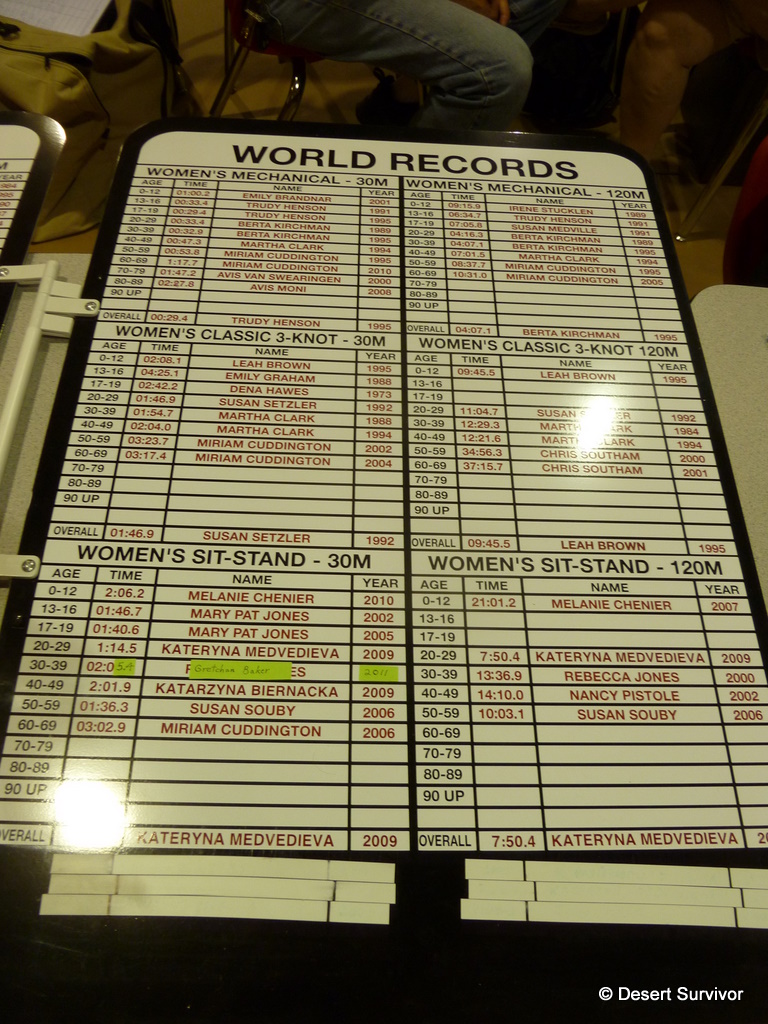 WORLD RECORDS
WOMEN'S MECHANICAL - 30M
AGE TIME NAME YEAR
0-12 01:00.2 EMILY BRANDNAR 2001
13-16 00:33.4 TRUDY HENSON 1991
17-19 00:29.4 TRUDY HENSON 1995
20-29 00:33.4 BERTA KIRCHMAN 1989
30-39 00:32.9 BERTA KIRCHMAN 1995
40-49 00:47.3 MARTHA CLARK 1994
50-59 00:53.8 MIRIAM CUDDINGTON 1995
60-69 1:17.7 MIRIAM CUDDINGTON 2010
70-79 01:47.2 AVIS VAN SWEARINGEN 2000
80-89 02:27.8 AVIS MONI 2008
90 UP
OVERALL 00:29.4 TRUDY HENSON 1995
WOMEN'S CLASSIC 3-KNOT - 30M
AGE TIME NAME YEAR
0-12 02:08.1 LEAH BROWN 1995
13-16 04:25.1 EMILY GRAHAM 1988
17-19 02:42.2 DENA HAWES 1973
20-29 01:46.9 SUSAN SETZLER 1992
30-39 01:54.7 MARTHA CLARK 1988
40-49 02:04.0 MARTHA CLARK 1994
50-59 03:23.7 MIRIAM CUDDINGTON 2002
60-69 03:17.4 MIRIAM CUDDINGTON 2004
70-79
80-89
90 UP
OVERALL 01:46.9 SUSAN SETZLER 1992
WOMEN'S SIT-STAND - 30M
AGE TIME NAME YEAR
0-12 2:06.2 MELANIE CHENIER 2010
13-16 01:46.7 MARY PAT JONES 2002
17-19 01:40.6 MARY PAT JONES 2005
20-29 1:14.5 KATERYNA MEDVEDIEVA 2009
30-39 02:05.4 Gretchen Baker ES 2011
40-49 2:01.9 KATARZYNA BIERNACKA 2009
50-59 01:36.3 SUSAN SOUBY 2006
60-69 03:02.9 MIRIAM CUDDINGTON 2006
70-79
80-89
90 UP
OVERALL KATERYNA MEDVEDIEVA 2009
WOMEN'S MECHANICAL - 120M
AGE TIME NAME YEAR
0-12 09:15.9 IRENE STUCKLEN 1989
13-16 06:34.7 TRUDY HENSON 1991
17-19 07:05.8 SUSAN MEDVILLE 1991
20-29 04:16.3 BERTA KIRCHMAN 1989
30-39 04:07.1 BERTA KIRCHMAN 1995
40-49 07:01.5 MARTHA CLARK 1994
50-59 08:37.7 MIRIAM CUDDINGTON 1995
60-69 10:31.0 MIRIAM CUDDINGTON 2005
70-79
80-89
90 UP
OVERALL 04:07.1 BERTA KIRCHMAN 1995
WOMEN'S CLASSIC 3-KNOT 120M
AGE TIME NAME YEAR
0-12 09:45.5 LEAH BROWN 1995
13-16
17-19
20-29 11:04.7 SUSAN 1992
30-39 12:29.3 CLARK 1984
40-49 12:21.6 CLARK 1994
50-59 34:56.3 CHRIS SOUTHAM 2000
60-69 37:15.7 CHRIS SOUTHAM 2001
70-79
80-89
90 UP
OVERALL 09:45.5 LEAH BROWN 1995
WOMEN'S SIT-STAND - 120M
AGE TIME NAME YEAR
0-12 21:01.2 MELANIE CHENIER 2007
13-16
17-19
20-29 7:50.4 KATERYNA MEDVEDIEVA 2009
30-39 13:36.9 REBECCA JONES 2000
40-49 14:10.0 NANCY PISTOLE 2002
50-59 10:03.1 SUSAN SOUBY 2006
60-69
70-79
80-89
90 UP
OVERALL 7:50.4 KATERYNA MEDVEDIEVA
© Desert Survivor